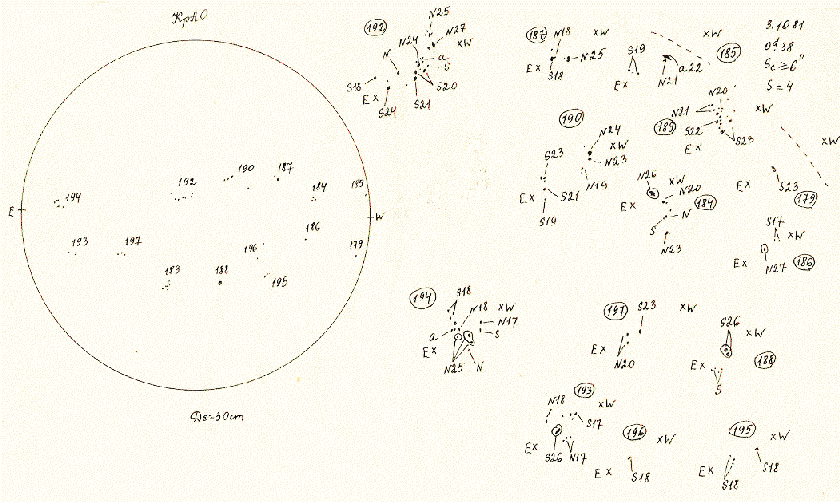 КрАО
E
W
194
192
190
187
184
185
193
197
196
186
179
183
188
195
Ds=30cm
192
N25
N24
N27
xW
N
a
S
S18
Ex
S24
S21
S20
187
N18
xW
N25
Ex
S18
S19
xW
185
Ex
N21
a22
3.10.81
S=4
190
N24
S23
xW
N23
Ex
S21
N19
S19
N20
N21
xW
S22
S23
Ex
xW
Ex
S23
179
N26
xW
N20
184
Ex
S
N
N23
S17
xW
Ex
N27
186
194
N18
xW
N17
a
S
Ex
N25
N
197
S23
xW
Ex
N20
S26
xW
Ex
188
S
193
N18
xW
S17
Ex
S26
N17
196
xW
Ex
S18
195
xW
Ex
S18
S18